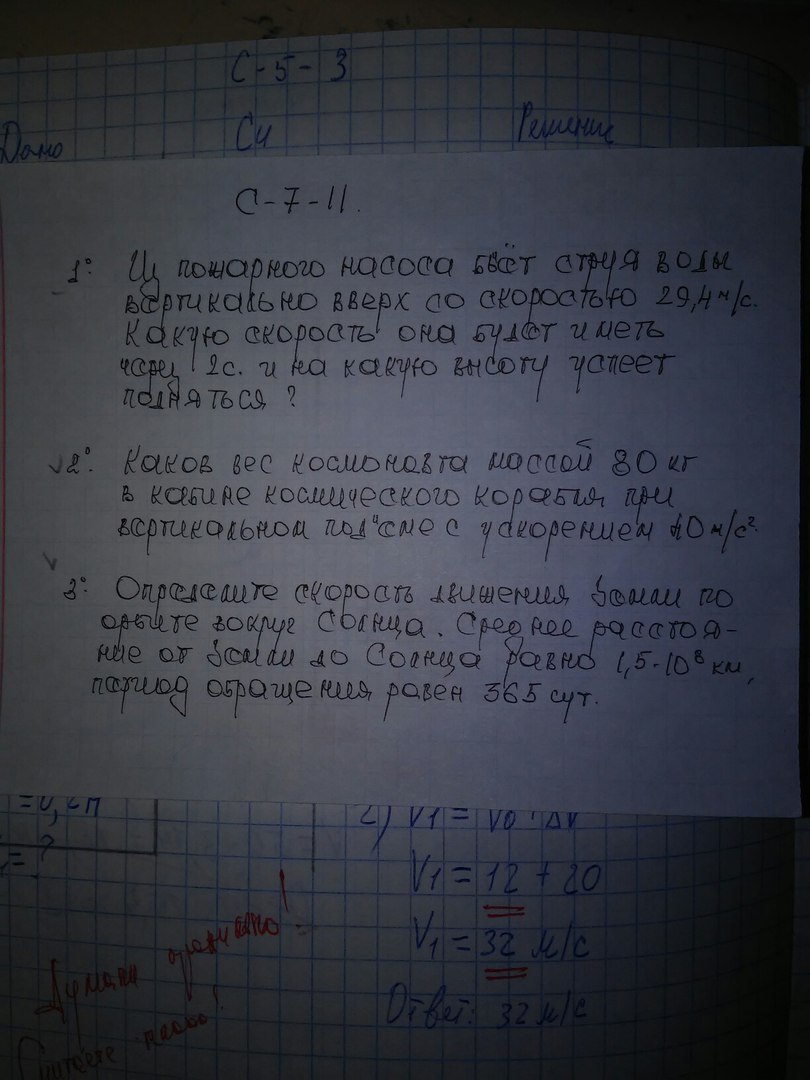 С-5-3
Дано Си Решение
С-7-11.
1° Из пожарного насоса бьёт струя воды
вертикально вверх со скоростью 29,4 м/с.
Какую скорость она будет иметь
через 2с. и на какую высоту успеет
подняться?
2°. Каков вес космонавта массой 80 кг
в кабине космического корабля при
вертикальном подъёме с ускорением 10 м/с².
3° Определите скорость движения Земли по
орбите вокруг Солнца. Среднее расстоя-
ние от Земли до Солнца равно 1,5·10⁸ км,
период обращения равен 365 сут.
2) V1 = V0 · ΔV
= ?
V1 = 12 + 20
V1 = 32 м/с
Ответ: 32 м/с
Думаем